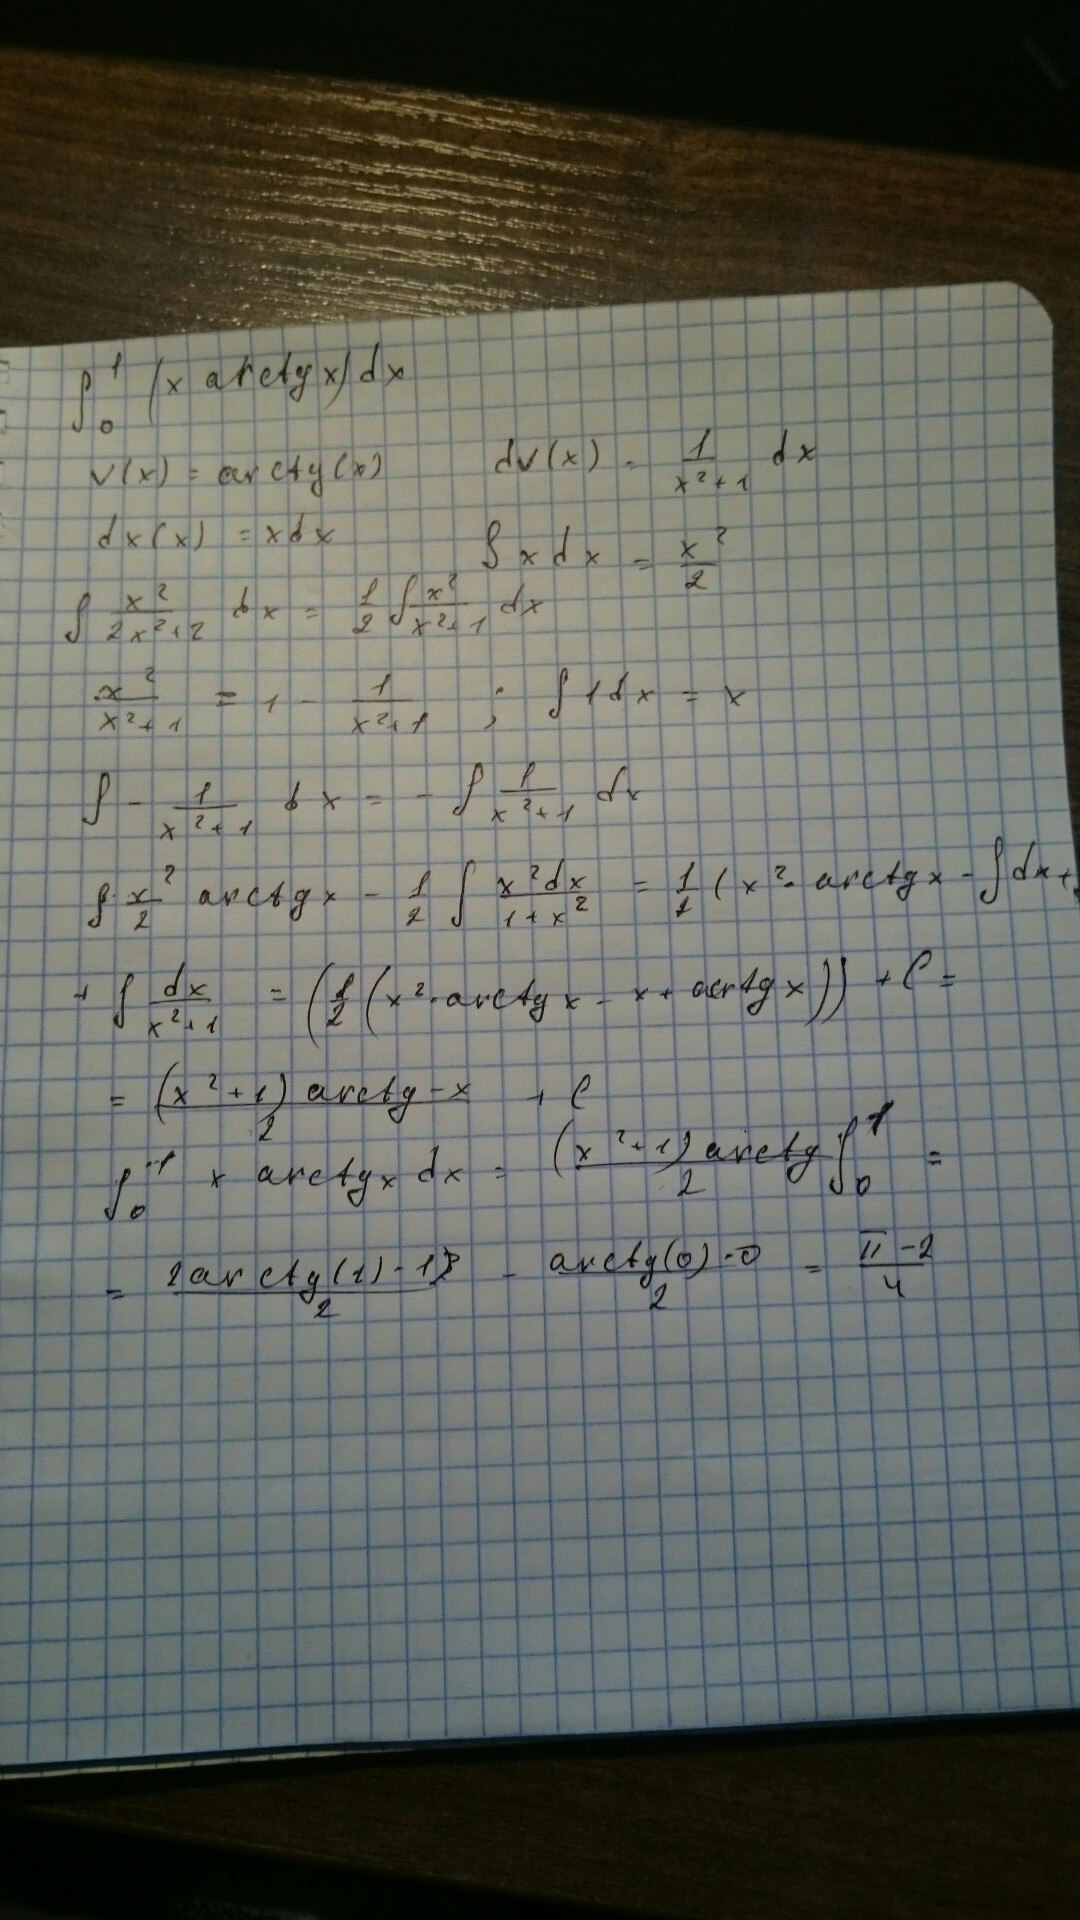 ∫₀¹ (x arctg x) dx
v(x) = arctg(x) dv(x) = 1/(x²+1) dx
dx(x) = xdx ∫ x dx = x²/2
∫ x²/(2x²+2) dx = 1/2 ∫ x²/(x²+1) dx
x²/(x²+1) = 1 - 1/(x²+1) ; ∫ 1dx = x
∫ - 1/(x²+1) dx = - ∫ 1/(x²+1) dx
x²/2 arctg x - 1/2 ∫ x²dx/(1+x²) = 1/2 (x² · arctg x - ∫ dx +
+ ∫ dx/(x²+1) = (1/2 (x² · arctg x - x + arctg x)) + C =
= ((x²+1) arctg - x)/2 + C
∫₀¹ x arctg x dx = ((x²+1) arctg)/2 ∫₀¹ =
= (2 arctg(1) - 1)/2 - (arctg(0) - 0)/2 = (π - 2)/4